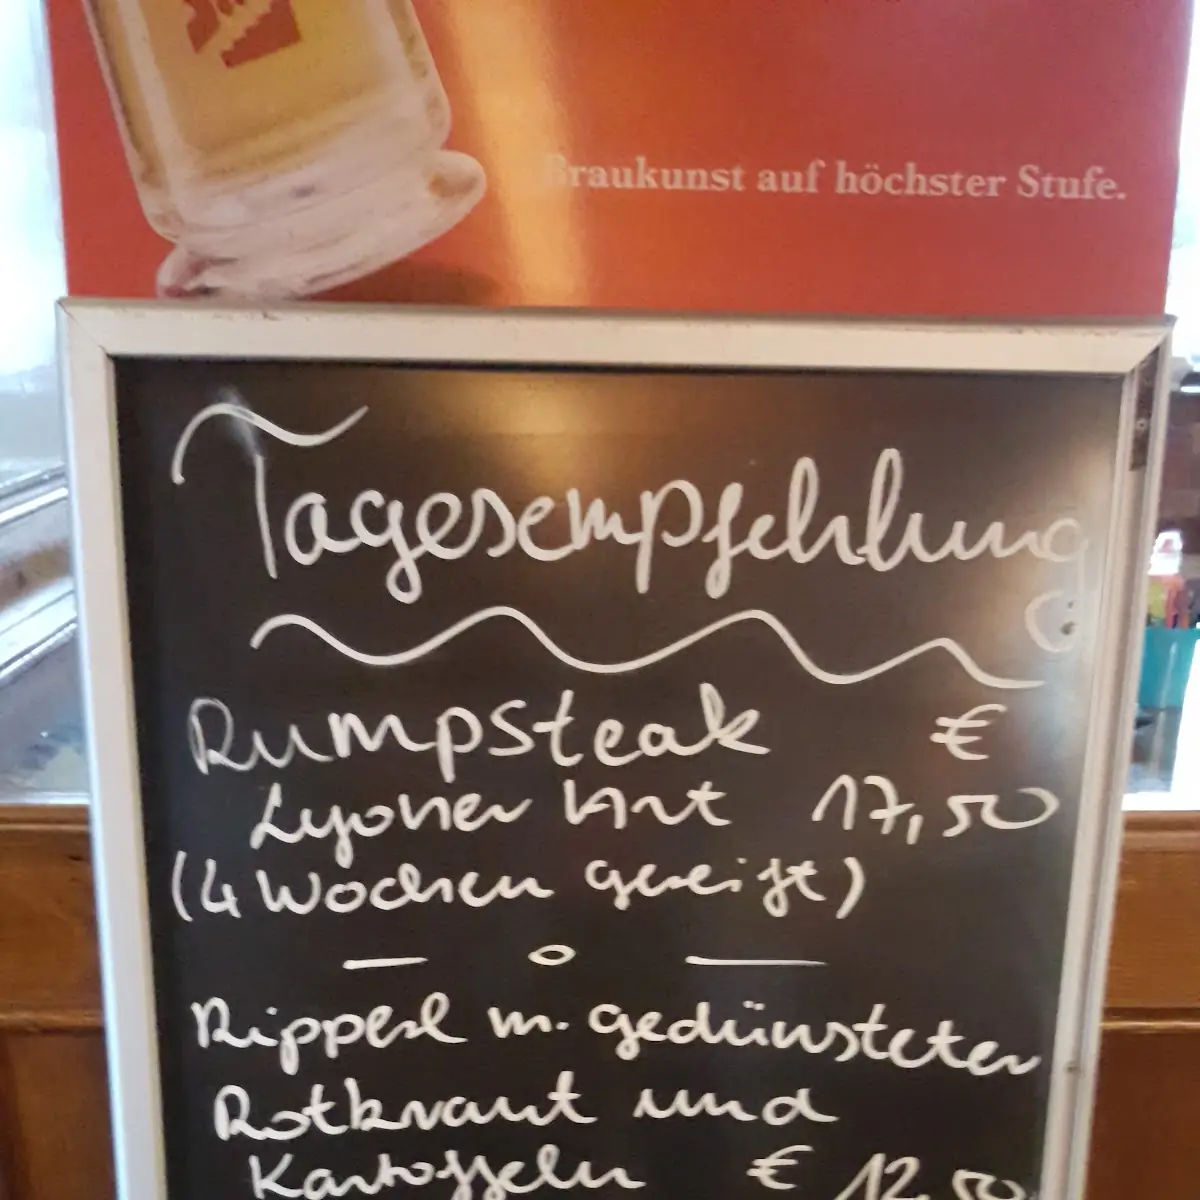 Braukunst auf höchster Stufe.
Tagesempfehlung
Rumpsteak €
Lyoner Art 17,50
(4 Wochen gereift)
Ripperl m. gedünsteter
Rotkraut und
Kartoffeln € 12,50